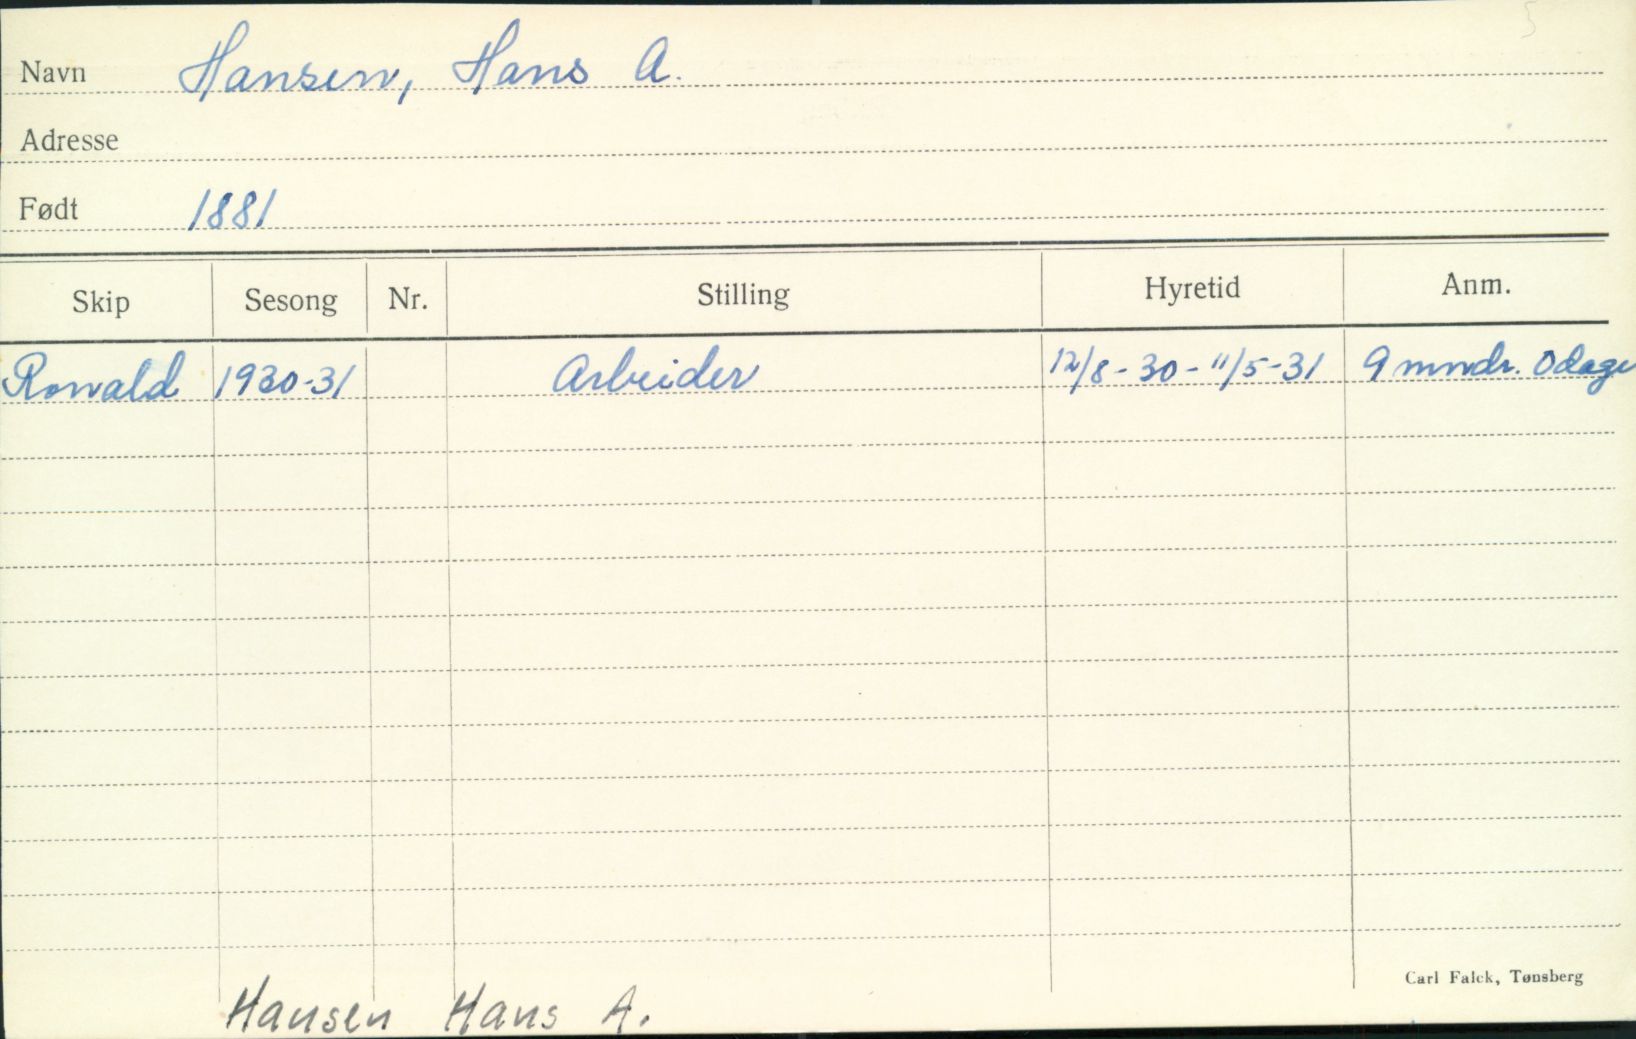 Navn Hansen, Hans A.
Adresse
Født 1881
Skip Sesong Nr. Stilling Hyretid Anm.
Ronald 1930-31 Arbeider 12/8-30-11/5-31 9 mndr. 0 dage
Carl Falck, Tønsberg
Hansen Hans A.